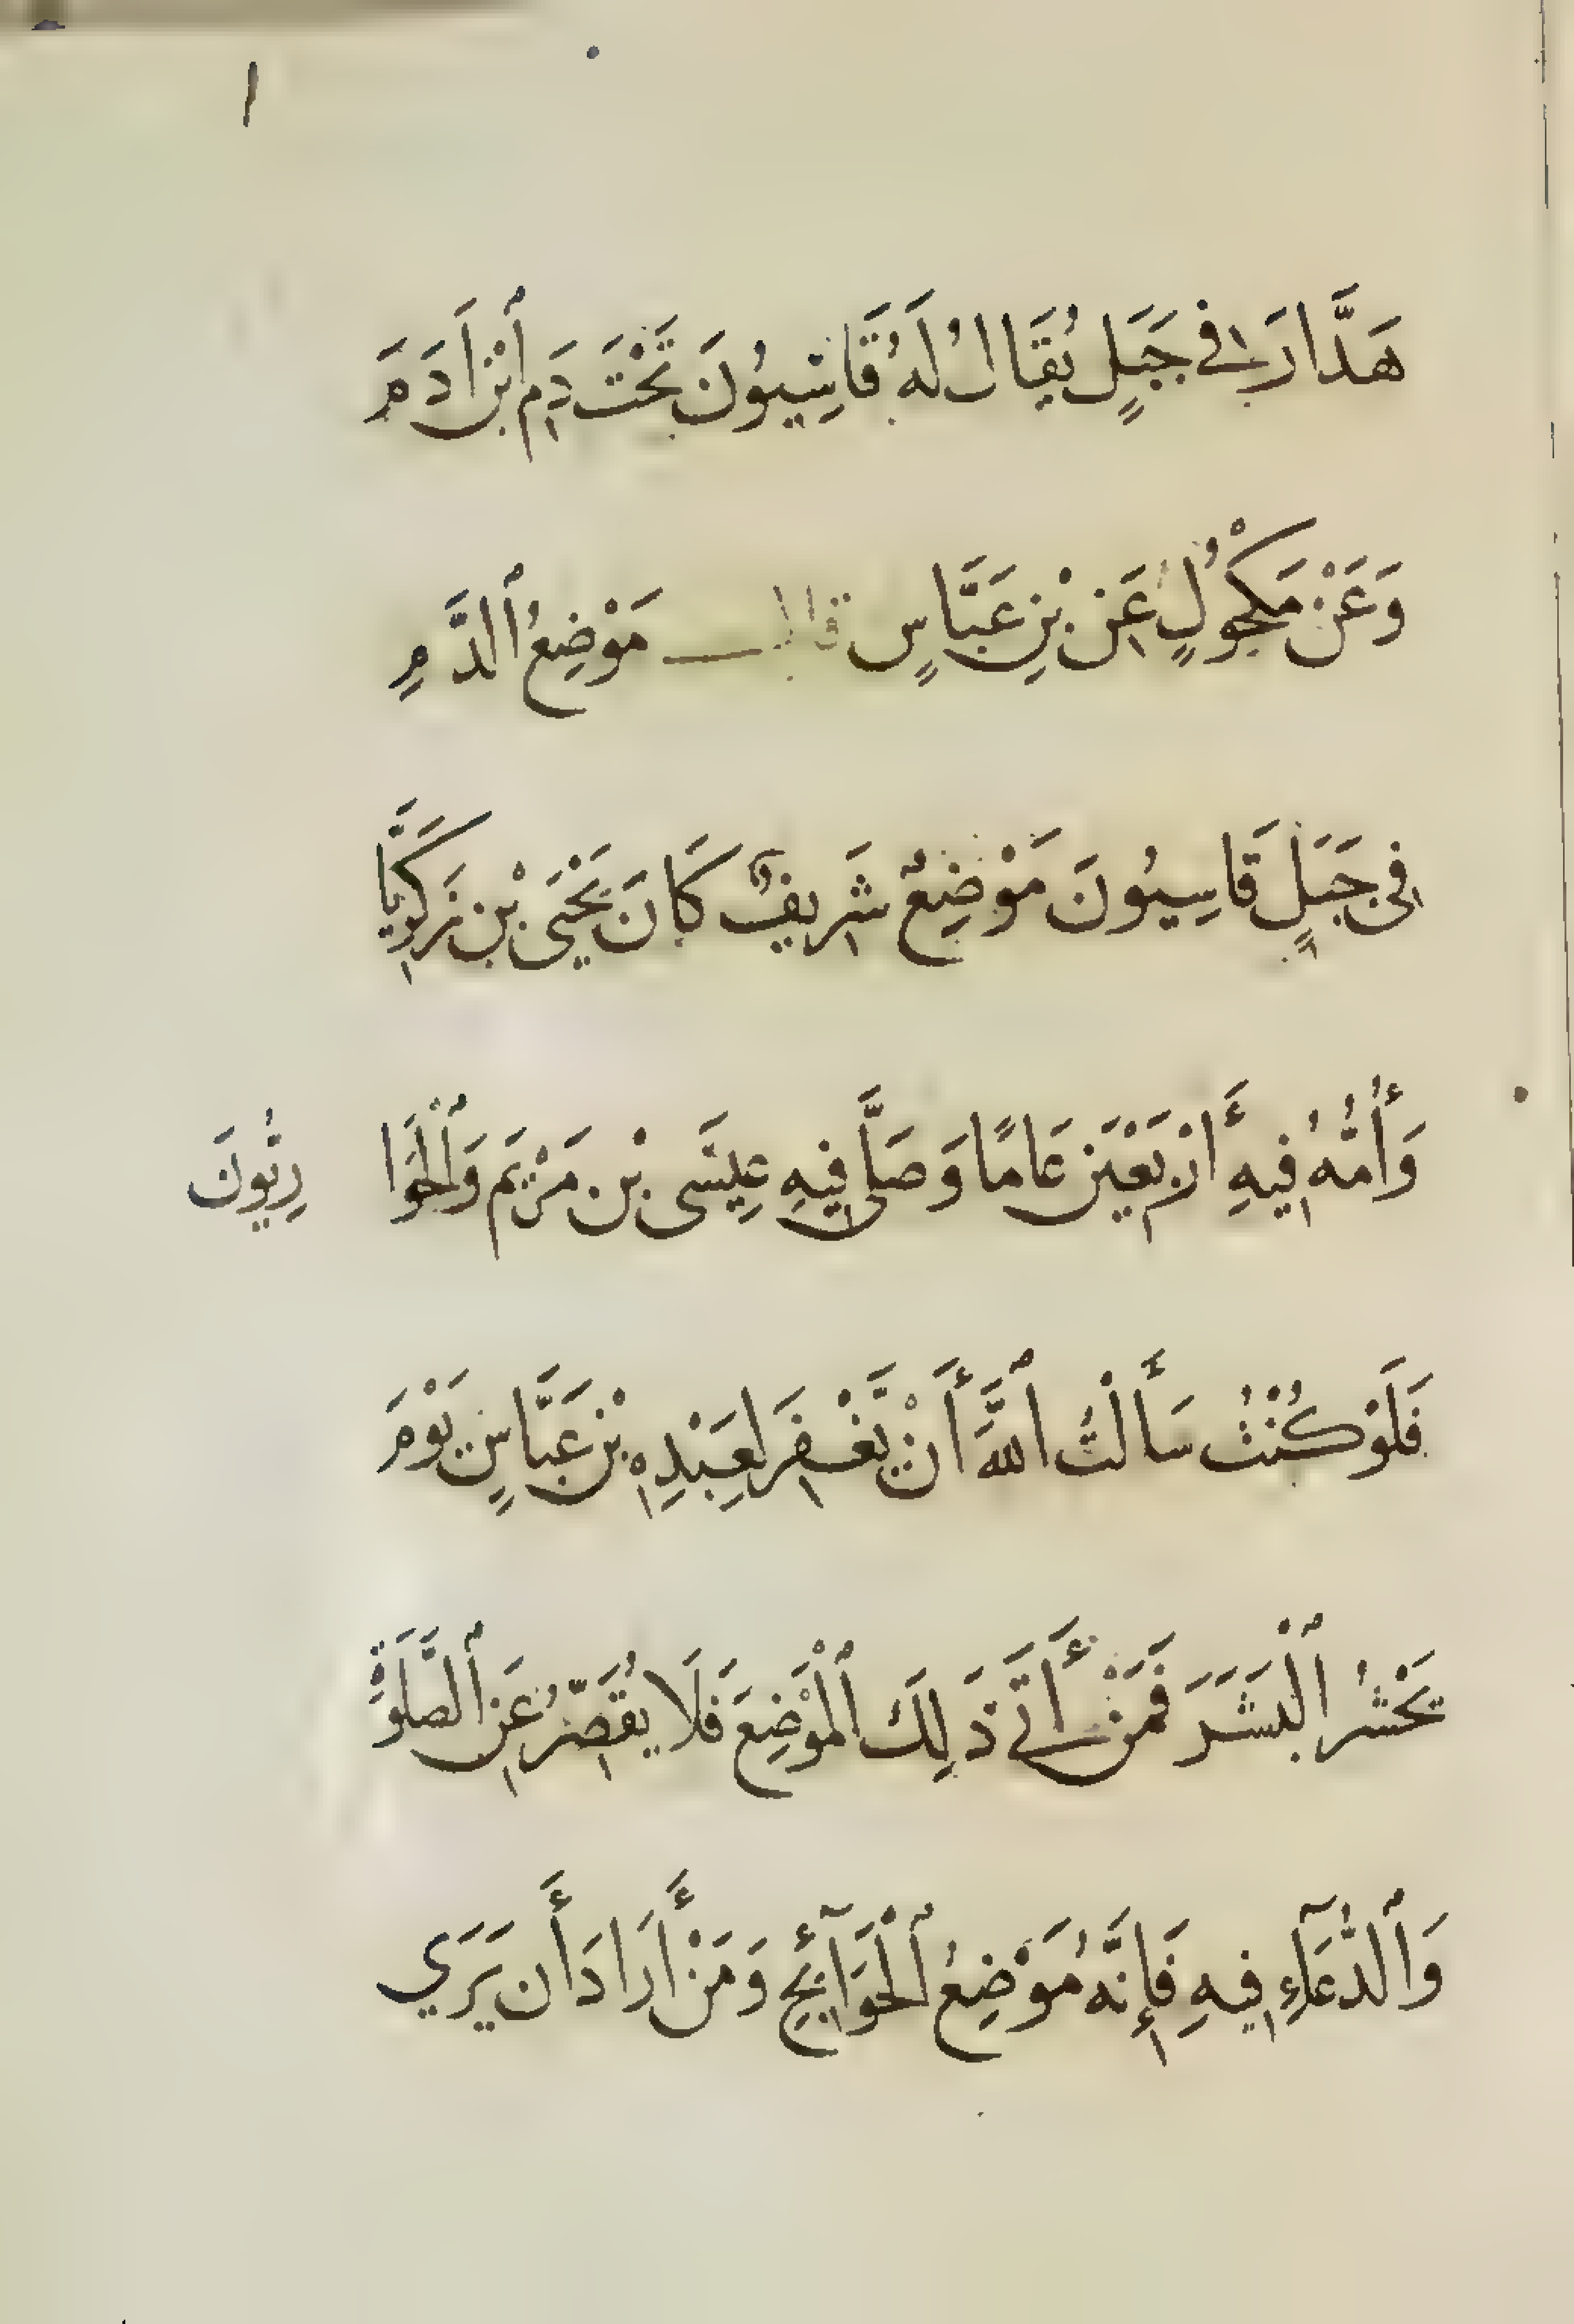 ١
هَدَّارَ فِي جَبَلٍ يُقَالُ لَهُ قَاسِيُونَ تَحْتَ دَمِ ٱبْنِ اَدَمَ
وَعَنْ مَكْحُولٍ عَنِ بْنِ عَبَّاسٍ قال مَوْضِعُ ٱلدَّمِ
فِى جَبَلٍ قَاسِيُونَ مَوْضِعٌ شَرِيفٌ كَانَ يَحْيَى بْنِ زَكَرِيَّا
وَأُمُّهُ فِيهِ أَرْبَعَيْنَ عَامًا وَصَلَّى فِيهِ عِيسَى بْنِ مَرْيَمَ وَٱلْحَوَا رِيُّونَ
فَلَوْ كُنْتُ سَأَلْتُ ٱللَّهَ أَنْ يَّغْفِرَ لِعَبْدِهِ بْنِ عَبَّاسٍ يَوْمَ
تَحْشُرُ ٱلْبَشَرَ فَمَنْ أَتَى ذَلِكَ ٱلْمَوْضِعَ فَلَا يُقَصِّرُ عَنِ ٱلصَّلَوٰةِ
وَٱلدُّعَآءِ فِيهِ فَإِنَّهُ مَوْضِعُ ٱلْحَوَآئِجِ وَمَنْ أَرَادَ أَن يَرَي